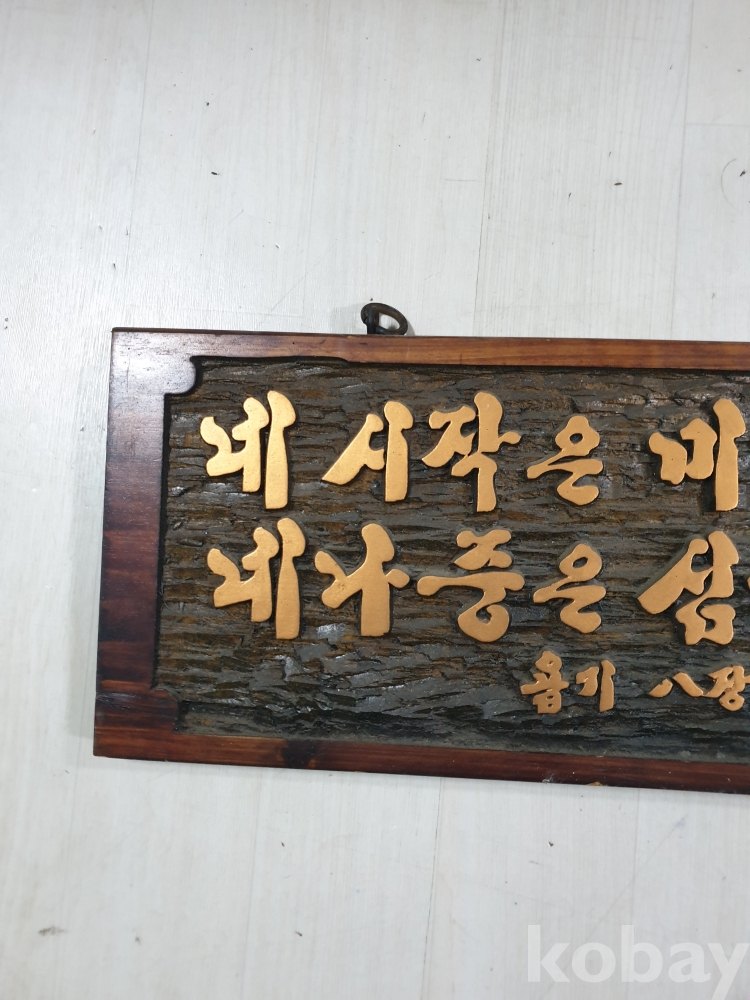 네 시작은 미
네 나중은 심
욥기 八장
kobay